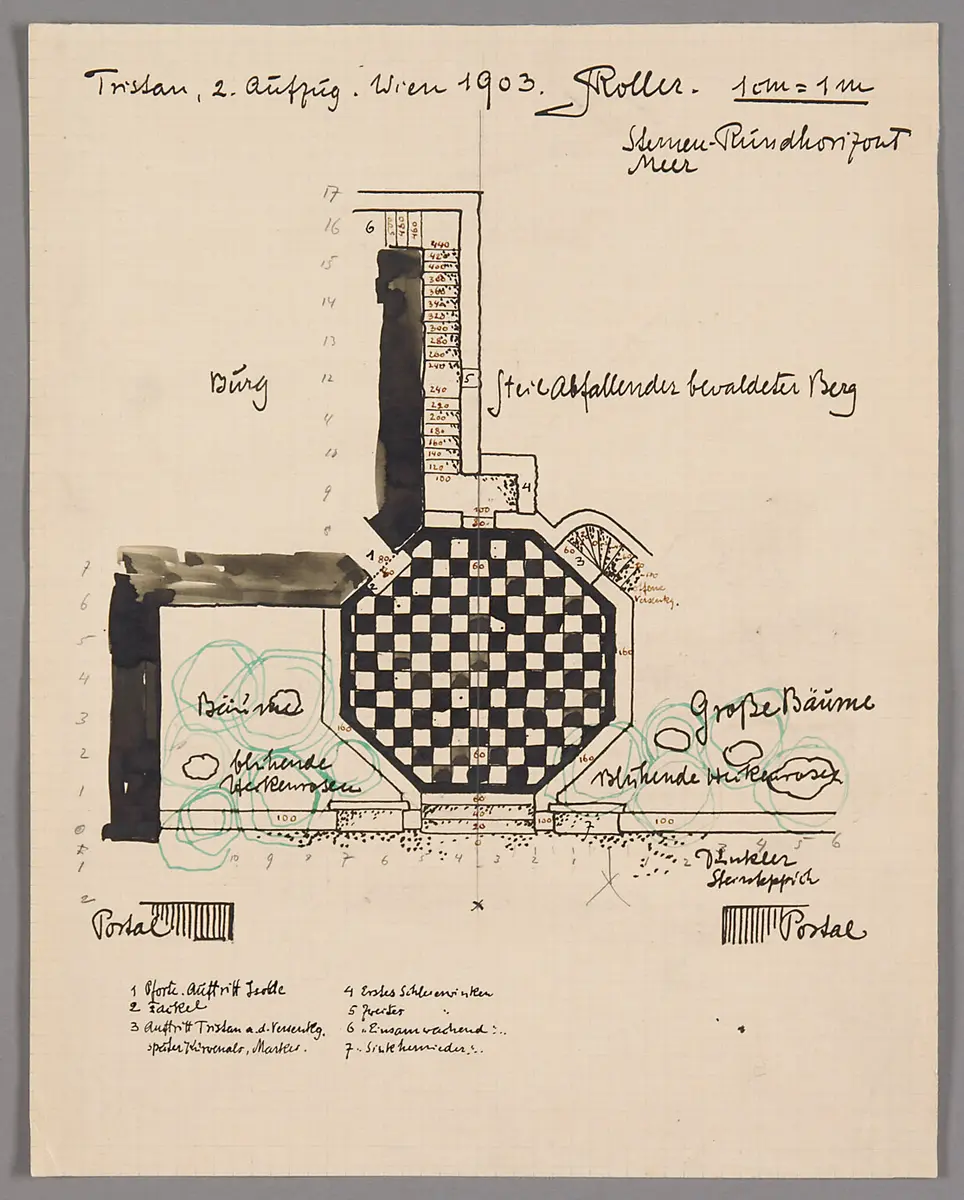 Tristan, 2. Aufzug. Wien 1903. Roller. 1cm = 1m
Sternen-Rundhorizont
Meer
17
16
6
500
480
460
440
15
420
400
380
360
14
340
320
300
13
280
260
240
12
5
Burg
Steil Abfallender bewaldeter Berg
240
220
11
200
180
160
10
140
120
100
4
9
100
80
8
1
80
60
3
60
7
2
offene
Versenkg.
6
5
160
4
Bäume
Große Bäume
3
160
2
blühende
60
160
Blühende Heckenrosen
Heckenrosen
1
60
100
40
100
7
100
0
20
0
1
10 9 8 7 6 5 4 3 2 1 1 2 3 4 5 6
Dunkler
Steinteppich
2
Portal
Portal
1 Pforte. Auftritt Isolde
2 Fackel
3 Auftritt Tristan a.d. Versenkg.
später Kurvenals, Markes.
4 Erstes Schleierwinken
5 Zweites "
6 "Einsam wachend":..
7 "Sink hernieder":..